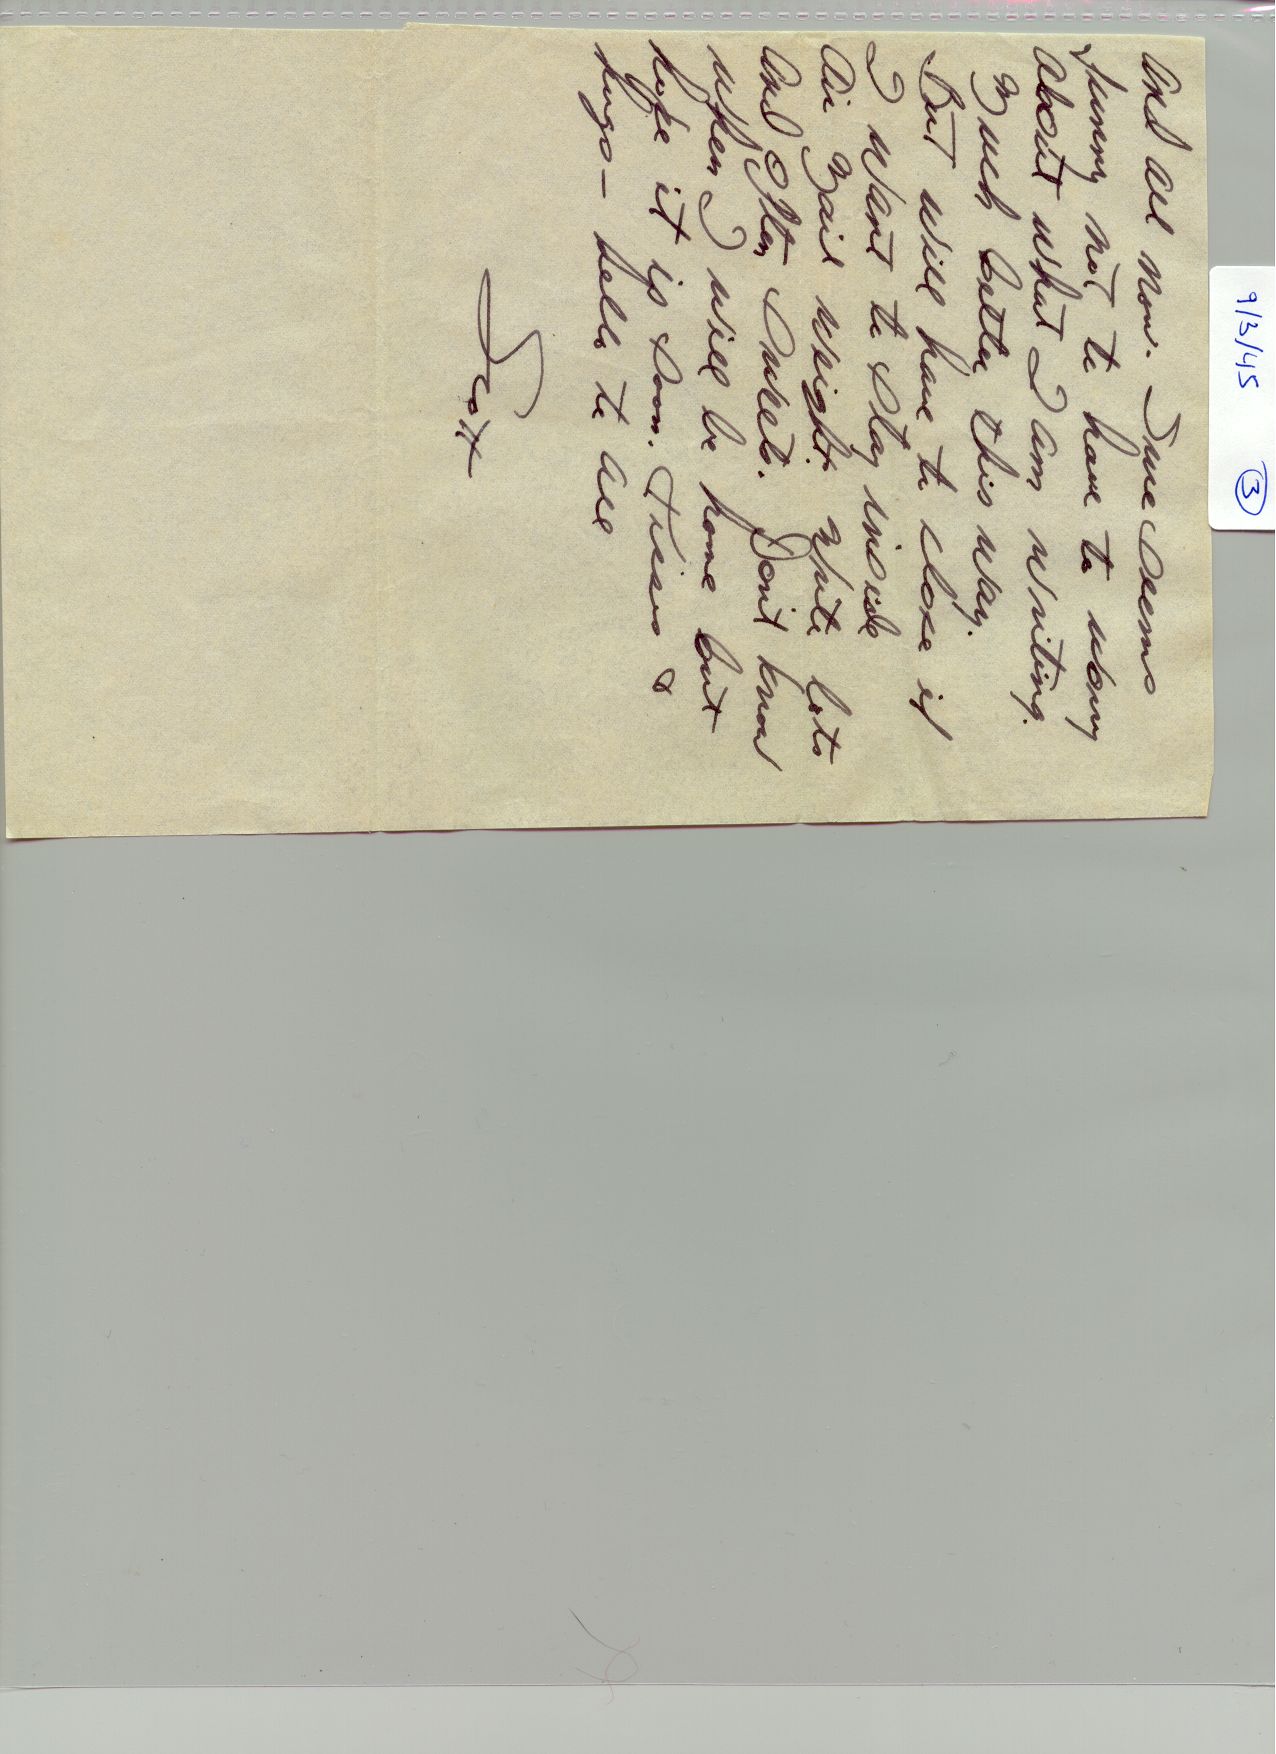 9/3/45 3
and all now. Sure seems
funny not to have to worry
about what I am writing.
Much better this way.
But will have to close if
I want to stay inside
Air Mail weight. Write lots
and often Sweets. Don't know
when I will be home but
hope it is soon. Kisses &
hugs - hello to all
Scott